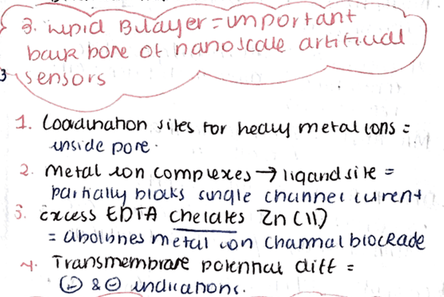 3. Lipid Bilayer = important
back bone of nanoscale artificial
sensors
3
1. Coordination sites for heavy metal ions =
inside pore.
2. Metal ion complexes → ligand site =
partially blocks single channel current
3. excess EDTA chelates Zn (II)
= abolishes metal ion channal blockade
4. Transmembrane potential diff =
⊕ & ⊖ indications.